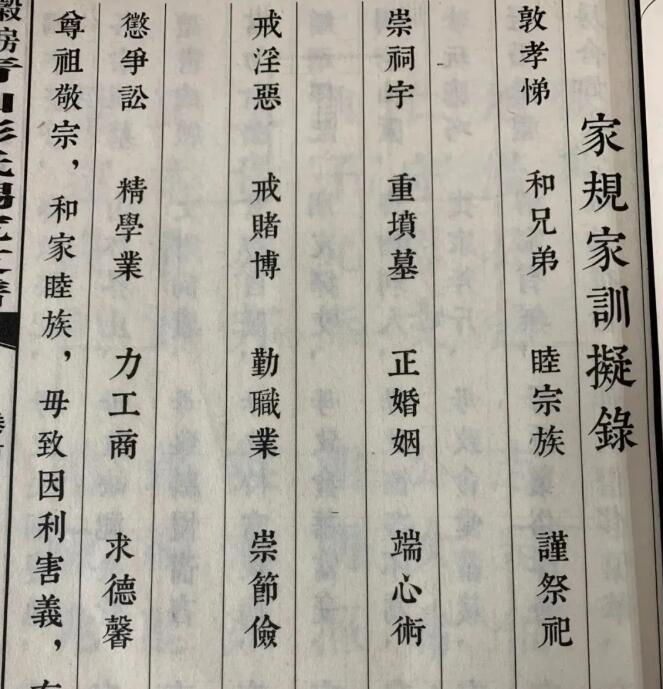 家規家訓擬錄
敦孝悌 和兄弟 睦宗族 謹祭祀
崇祠宇 重墳墓 正婚姻 端心術
戒淫惡 戒賭博 勤職業 崇節儉
懲爭訟 精學業 力工商 求德馨
尊祖敬宗，和家睦族，毋致因利害義，